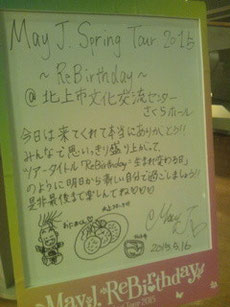 May J. Spring Tour 2015
~ ReBirthday ~
@ 北上市文化交流センター
さくらホール
今日は来てくれて本当にありがとう!!
みんなで思いっきり盛り上がって、
ツアータイトル"ReBirthday=生まれ変わる日"
のように明日から新しい自分で過ごしましょう!!
是非最後まで楽しんでね
May J.
2015.5.16
May J. ReBirthday
Tour 2015